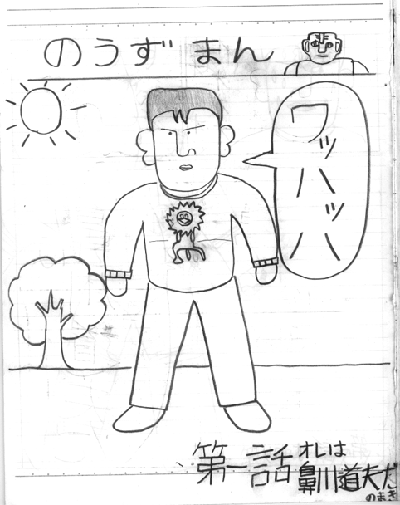 のうずまん
ワッハッハ
第一話 オレは
鼻川道夫だ
のまき